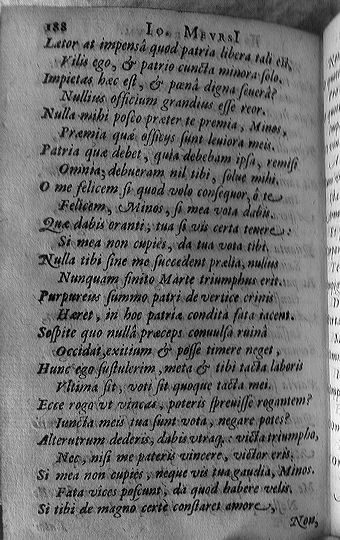 188 IO. MEVRSI
Lator at impensâ quod patria libera tali est,
Vilis ego, & patrio cuncta minora solo.
Impietas hæc est, & pœnâ digna severâ?
Nullius officium grandius esse reor.
Nulla mihi posco præter te premia, Minos,
Præmia quæ officijs sunt leviora meis.
Patria quæ debet, quia debebam ipsa, remisi
Omnia; debueram nil tibi, solve mihi.
O me felicem si quod volo consequor, ô te
Felicem, Minos, si mea vota dabis.
Quæ dabis oranti, tua si vis certa tenere:
Si mea non cupies, da tua vota tibi.
Nulla tibi sine me succedent prælia, nullus
Nunquam finito Marte triumphus erit.
Purpureus summo patri de vertice crinis
Hæret, in hoc patriæ condita fata iacent.
Sospite quo nullâ præceps convulsa ruinâ
Occidat, exitium & posse timere neget,
Hunc ego sustulerim, meta & tibi tacta laboris
Vltima sit, voti sit quoque tacta mei.
Ecce rogo vt vincas, poteris sprevisse rogantem?
Iuncta meis tua sunt vota, negare potes?
Alterutrum dederis, dabis vtraq. victa triumpho,
Nec, nisi me pateris vincere, victor eris.
Si mea non cupies, neque vis tua gaudia, Minos.
Fata vices poscunt, da quod habere velis.
Si tibi de magno certè constaret amore,
Non,